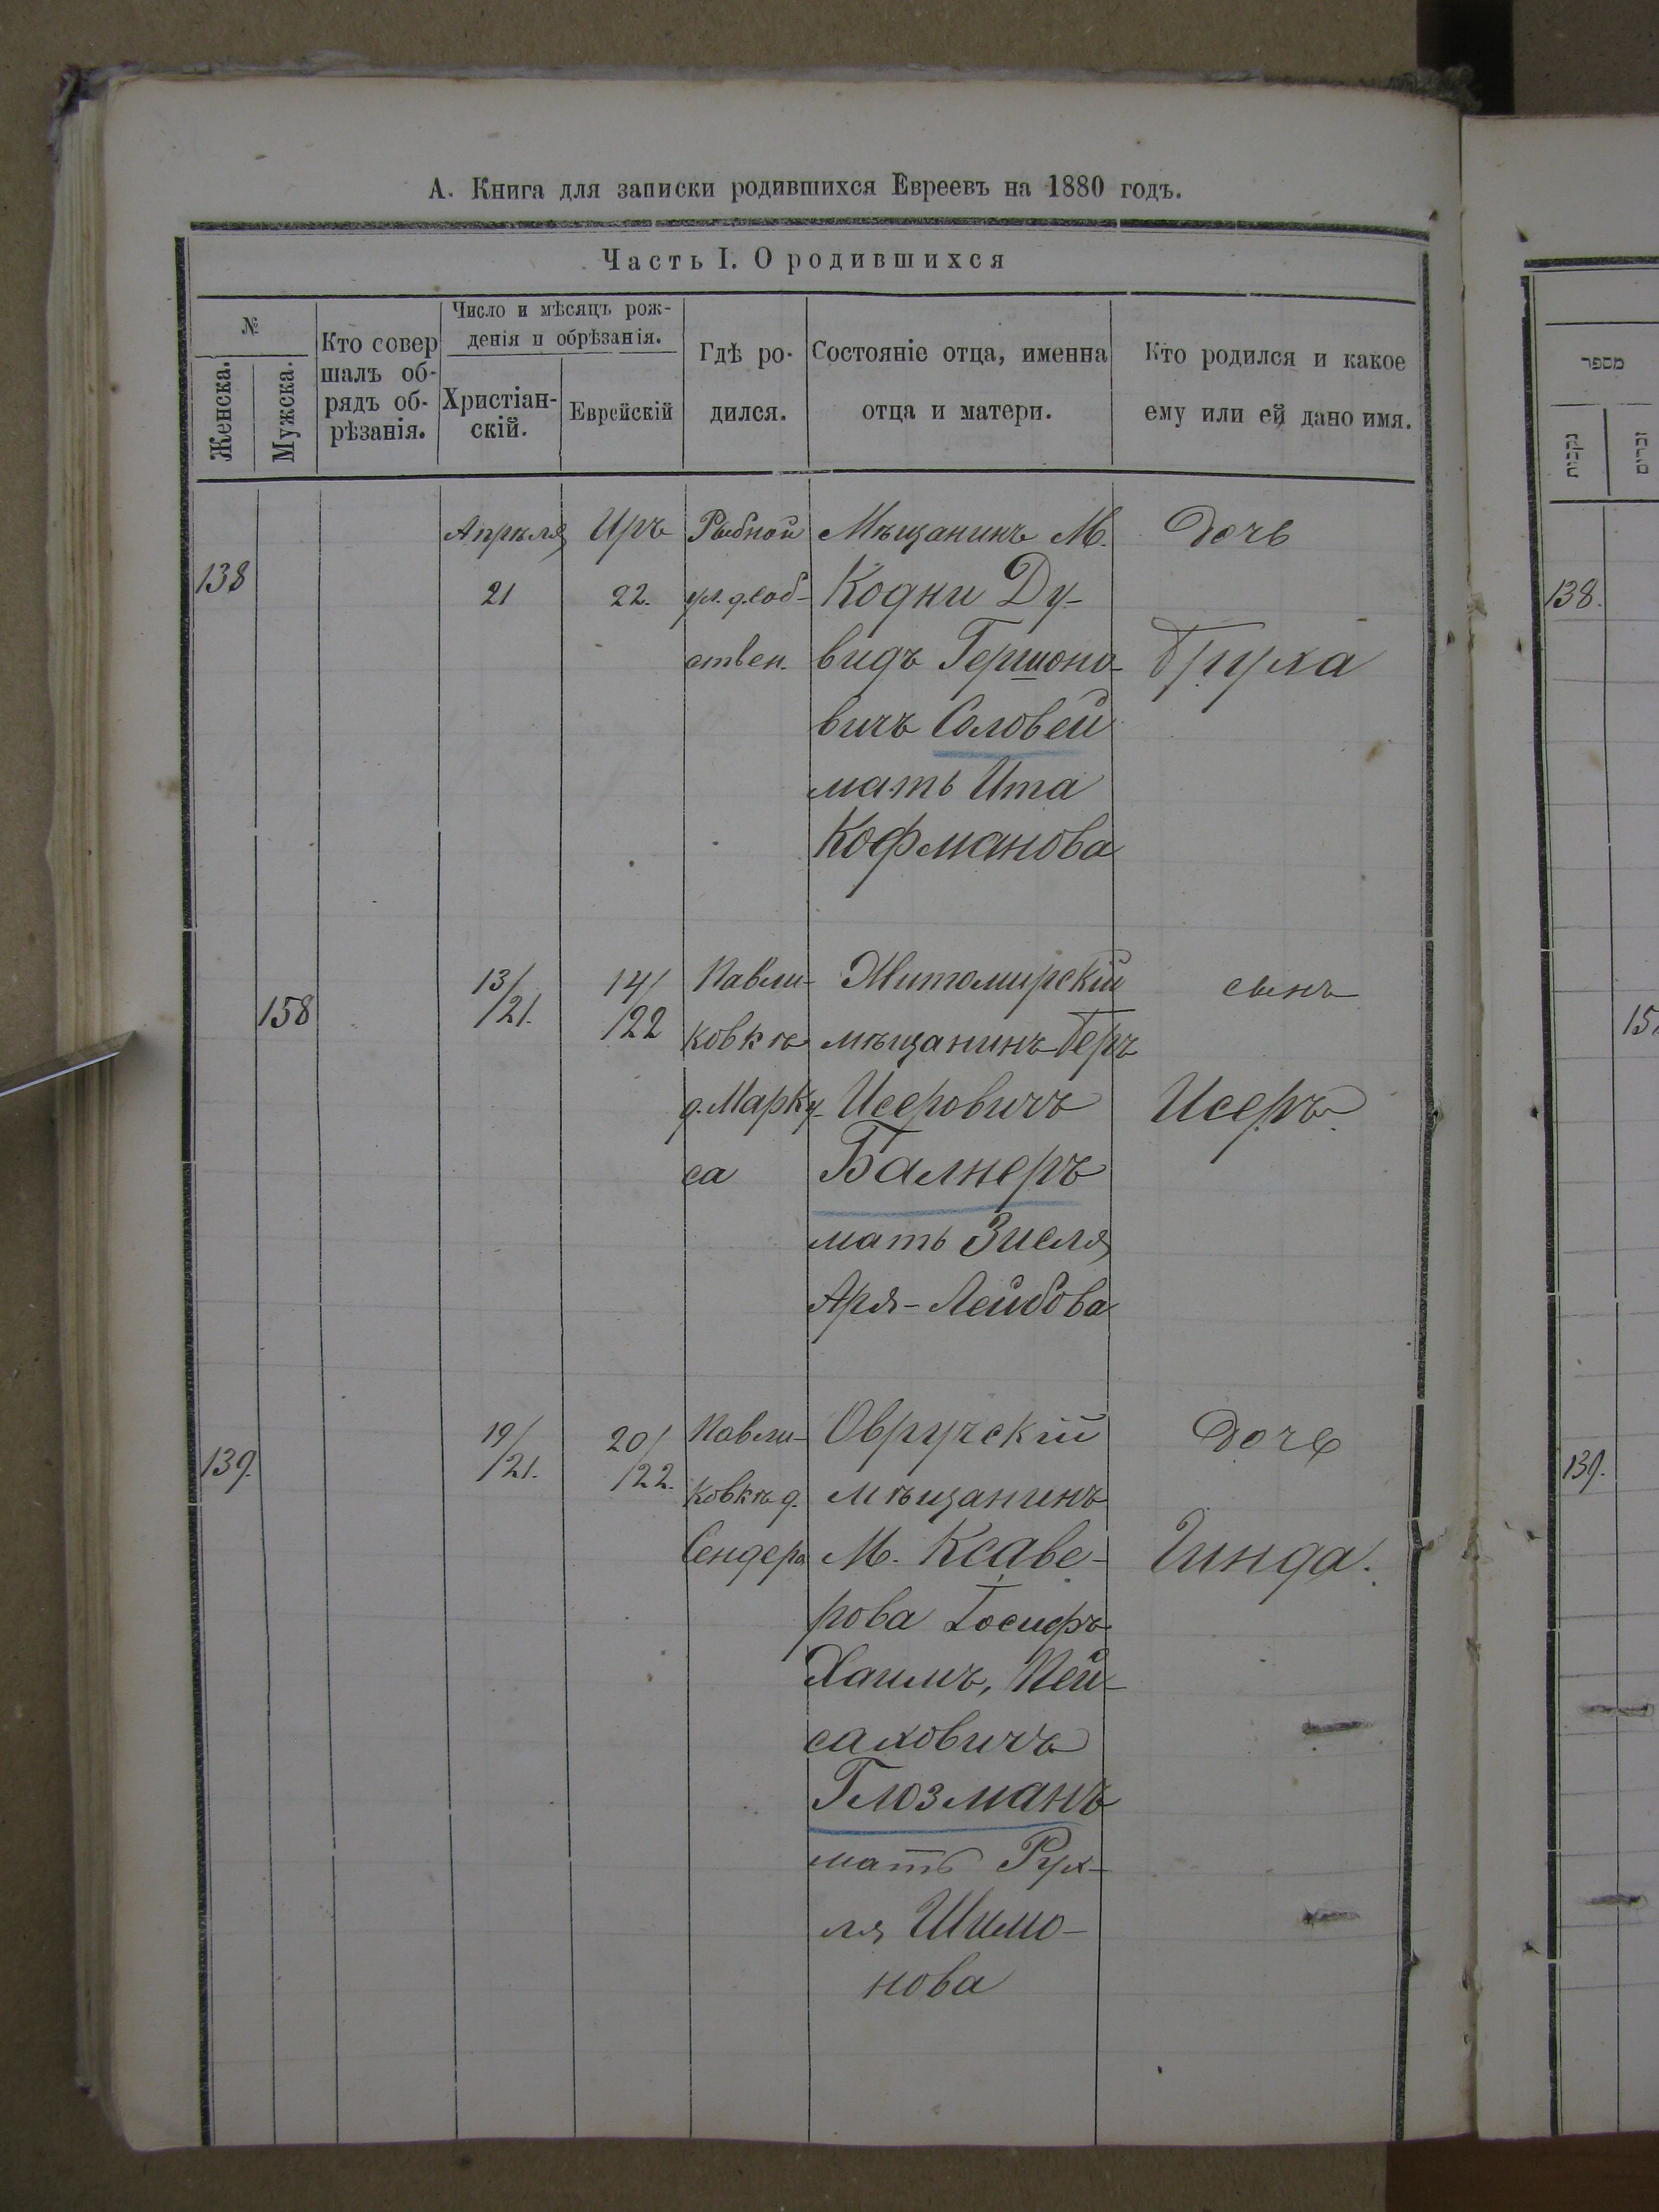 А. Книга для записки родившихся Евреевъ на 1880 годъ.
Часть I. О родившихся
№
Женска.
Мужска.
Кто совер
шалъ об-
рядъ об-
рѣзанія.
Число и мѣсяцъ рож-
денія и обрѣзанія.
Христіан-
скій.
Еврейскій
Гдѣ ро-
дился.
Состояніе отца, именна
отца и матери.
Кто родился и какое
ему или ей дано имя.
138
Апрѣля
21
Иръ
22.
Рыбной
ул. д. соб-
ствен.
Мѣщанинъ М.
Кодни Ду-
видъ Гершоно-
вичъ Соловей
мать Ита
Кофманова
Дочь
Бруха
158
13/
/21.
14/
/22
Павли-
ковкѣ
д. Марку-
са
Житомирскій
мѣщанинъ Беръ
Исеровичъ
Балнеръ
мать Зисля
Аря-Лейбова
сынъ
Исеръ
139.
19/
/21.
20/
/22.
Павли-
ковкѣ д.
Сендера
Овручскій
мѣщанинъ
М. Ксаве-
рова Іосифъ
Хаимъ, Пей-
саховичъ
Глозманъ
мать Рух-
ля Шимо-
нова
Дочь
Гинда.
מספר
נקבות
זכרים
138.
15
139.